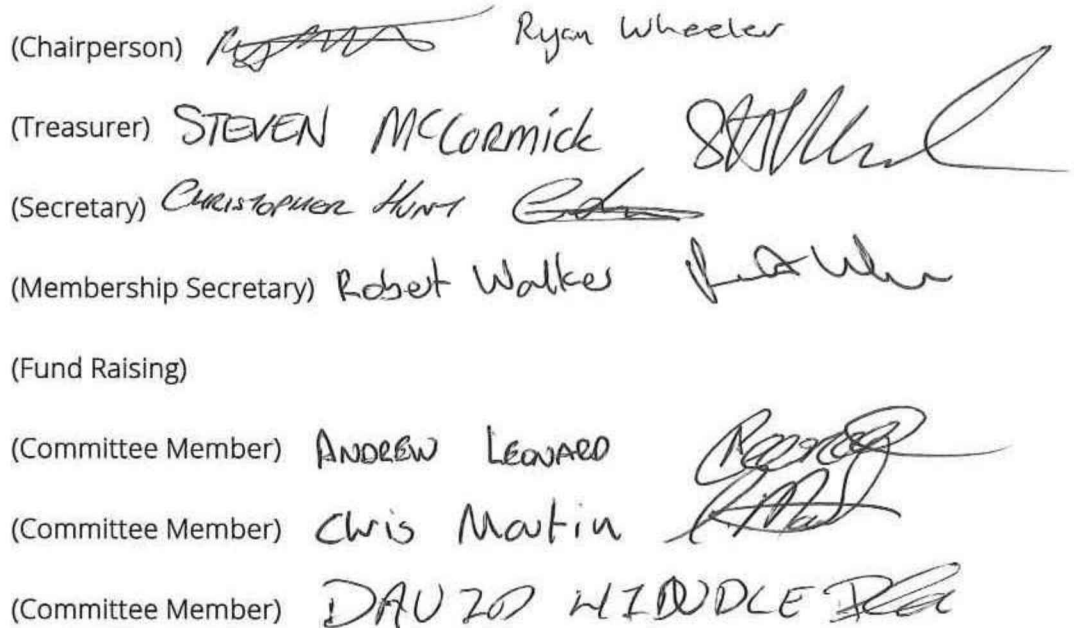 (Chairperson) Ryan Wheeler
(Treasurer) STEVEN MCCORMICK
(Secretary) CHRISTOPHER HUNT
(Membership Secretary) Robert Walker
(Fund Raising)
(Committee Member) ANDREW LEONARD
(Committee Member) Chris Martin
(Committee Member) DAVID WINDLE